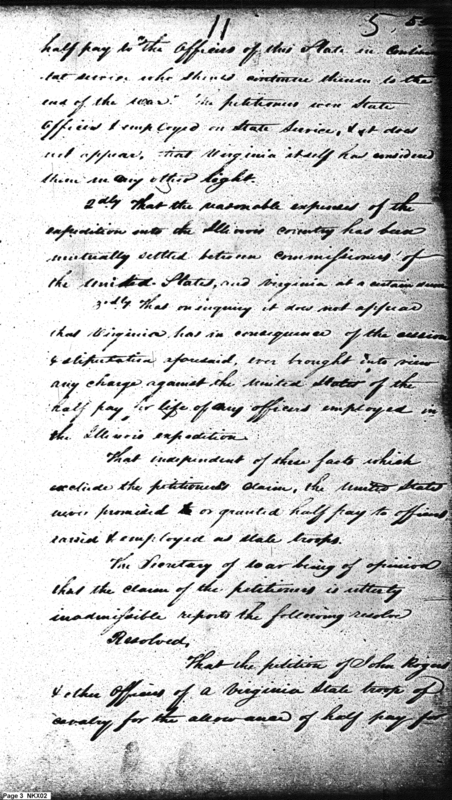 11
5
half pay to the Officers of this State in Contin
tal service who shall continue therein to the
end of the war." The petitioners were State
Officers & employed on State Service, & it does
not appear, that Virginia itself has considered
them in any other light.
2dly That the reasonable expenses of the
expedition into the Illinois country has been
mutually settled between commissioners of
the United States, and Virginia at a certain sum
3rdly That on inquiry it does not appear
that Virginia has in consequence of the cession
& stipulation aforesaid, ever brought into view
any charge against the United States of the
half pay for life of any officers employed in
the Illinois expedition
That independent of these facts which
exclude the petitioners claim, the United States
never promised to or granted half pay to officers
raised & employed as state troops.
The Secretary of war being of opinion
that the claim of the petitioners is utterly
inadmissible reports the following resolve
Resolved,
That the petition of John Rogers
& other Officers of a Virginia State troop of
cavalry for the allowance of half pay for
Page 3 NKX02